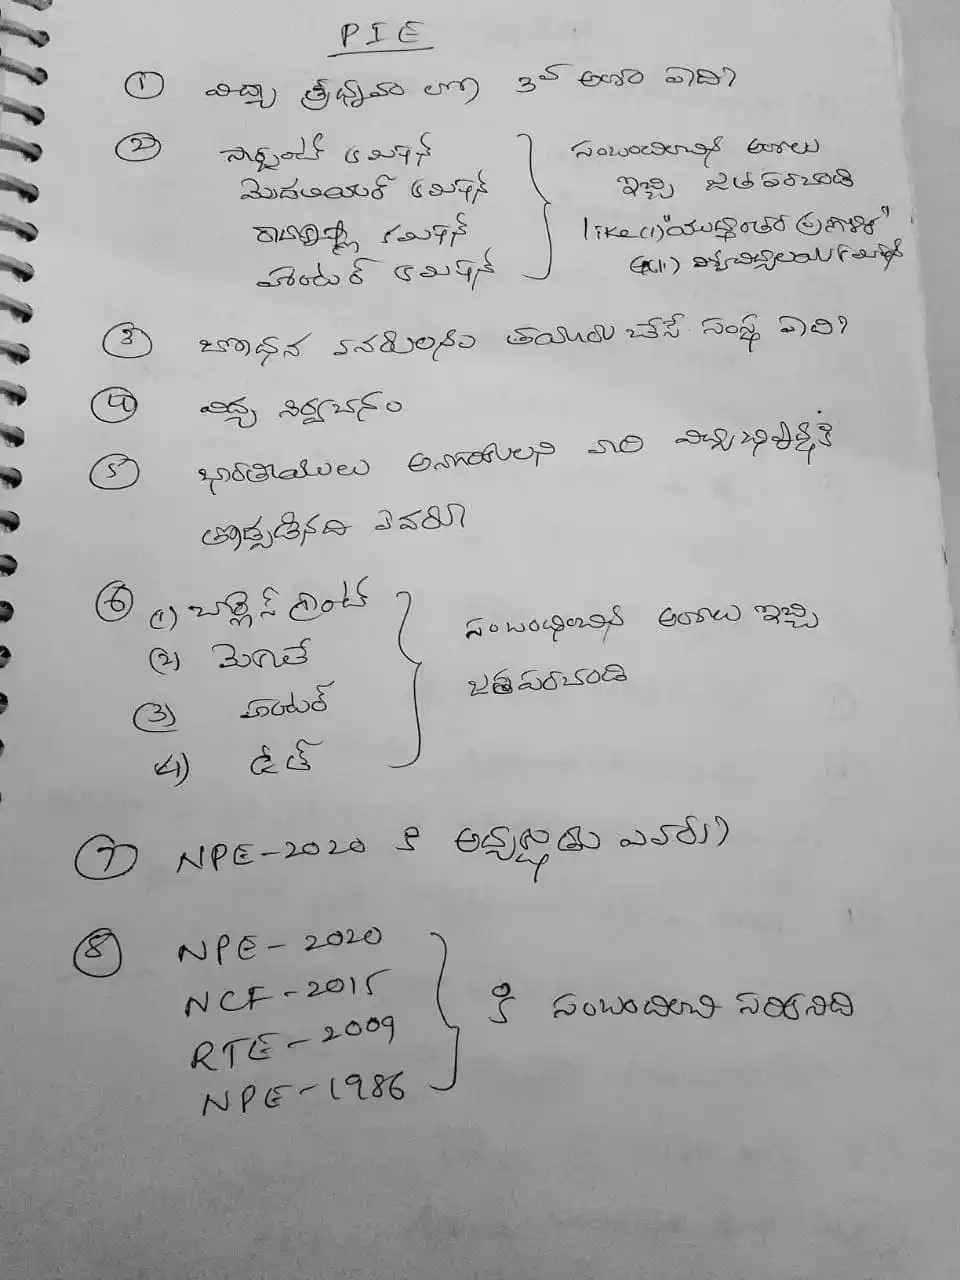 PIE
① విద్యా త్రిధృవం లో 3వ అంశం ఏది?
② సార్జంట్ కమిషన్
మొదలియర్ కమిషన్
రాధాకృష్ణ కమిషన్
హంటర్ కమిషన్
సంబంధించిన అంశాలు
ఇచ్చి జతపరచండి
like (1) "యుద్ధానంతర ప్రణాళిక"
విశ్వవిద్యాలయ కమిషన్
③ బోధన వనరులను తయారు చేసే సంస్థ ఏది?
④ విద్య నిర్వచనం
⑤ భారతీయులు అనాగరికులని వారి విద్యాభివృద్ధికి
తోడ్పడినది ఎవరు
⑥ (1) గ్రాంట్
(2) మెకాలే
(3) హంటర్
(4) ఉడ్
సంబంధించిన అంశాలు ఇచ్చి
జతపరచండి
⑦ NPE-2020 కి అధ్యక్షుడు ఎవరు?
⑧ NPE-2020
NCF-2015
RTE-2009
NPE-1986
కి సంబంధించి సరికానిది